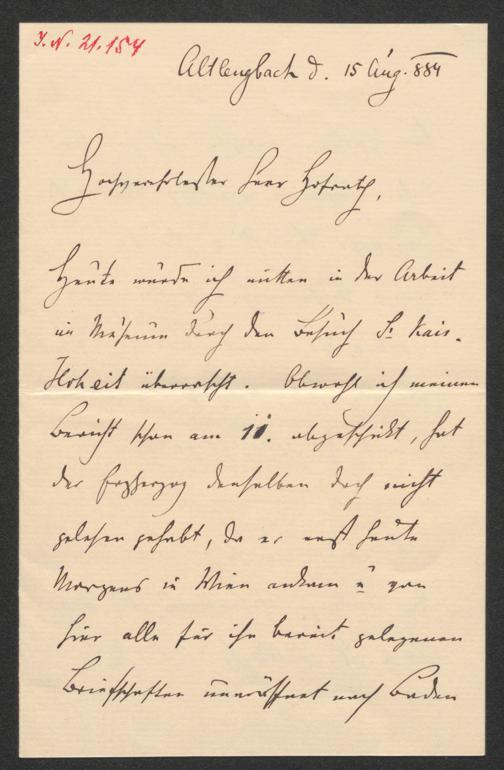 J.N. 21.154
Altlengbach d. 15 Aug. 884
Hochverehrtester Herr Hofrath,
Heute wurde ich mitten in der Arbeit
im Museum durch den Besuch Sr. Kais.
Hoheit überrascht. Obwohl ich meinen
Bericht schon am 11. abgeschickt, hat
der Erzherzog denselben doch nicht
gelesen gehabt, da er erst heute
Morgens in Wien ankam u von
hier alle für ihn bereit gelegenen
Briefschaften uneröffnet nach Baden